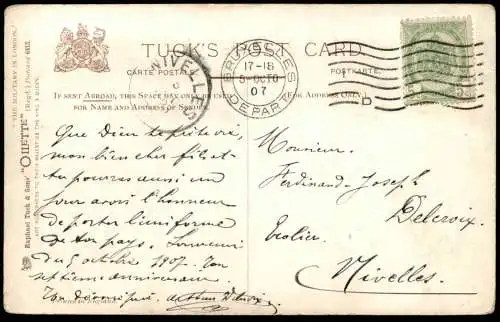 TUCK'S POST CARD
CARTE POSTALE
POSTKARTE
IF SENT ABROAD, THIS SPACE MAY ONLY BE USED
FOR NAME AND ADDRESS OF SENDER
(FOR ADDRESS ONLY.)
THE MILITARY IN LONDON.
Raphael Tuck & Sons' "OILETTE" (Regd.) Postcard
NIVELLES
BRUXELLES
17-18
5-OCTO
07
DEPART
Que Dieu te
mon bien cher fils et
tu pourras aussi un
jour avoir l'honneur
de porter l'uniforme
de ton pays. Souvenir
du 5 octobre 1907. Ton
septième anniversaire.
Monsieur
Ferdinand-Joseph
Delcroix
Ecolier
Nivelles.